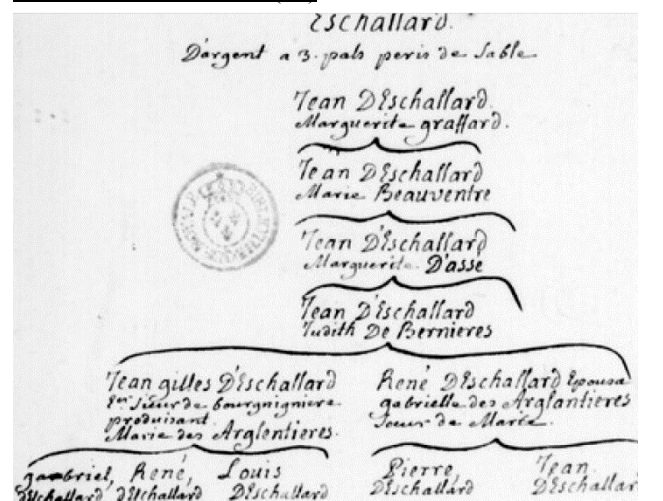 Eschallard.
D'argent a 3. pals peris de Sable
Jean D'Eschallard.
Marguerite graffard.
Jean D'Eschallard
Marie Beauventre
Jean D'Eschallard
Marguerite D'assé
Jean D'Eschallard
Judith De Bernieres
Jean gilles D'Eschallard
Ecer Sieur de bourgnigniere
produisant.
Marie des Arglentieres.
René D'Eschallard Epousa
gabrielle des Arglantieres
Soeur de Marie.
gabriel, René, Louis
D'Eschallard d'Eschallard D'Eschallard
Pierre, Jean
D'Eschallard D'Eschallard